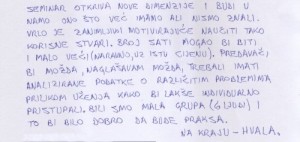 SEMINAR OTKRIVA NOVE DIMENZIJE I BUDI U
NAMA ONO ŠTO VEĆ IMAMO ALI NISMO ZNALI.
VRLO JE ZANIMLJIVO I MOTIVIRAJUĆE NAUČITI TAKO
KORISNE STVARI. BROJ SATI MOGAO BI BITI
I MALO VEĆI (NARAVNO, UZ ISTU CIJENU), PREDAVAČI
BI MOŽDA, NAGLAŠAVAM MOŽDA, TREBALI IMATI
ANALIZIRANE PODATKE O RAZLIČITIM PROBLEMIMA
PRILIKOM UČENJA KAKO BI LAKŠE INDIVIDUALNO
PRISTUPALI. BILI SMO MALA GRUPA (LJUDI) I
TO BI BILO DOBRO DA BUDE PRAKSA.
NA KRAJU - HVALA.